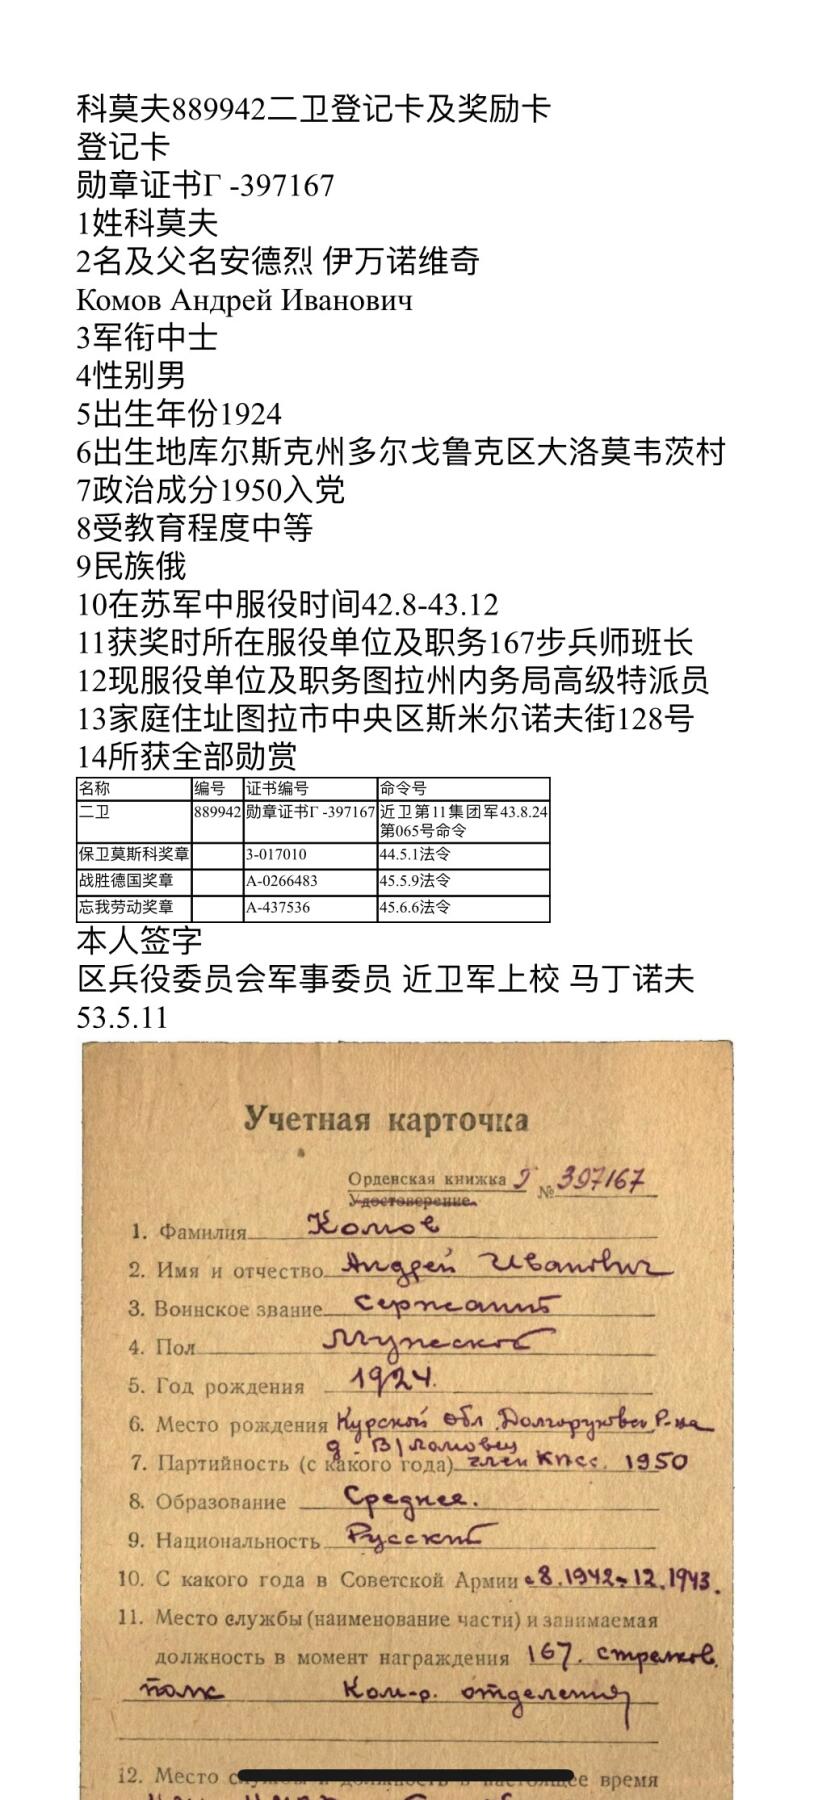 科莫夫889942二卫登记卡及奖励卡
登记卡
勋章证书Г -397167
1姓科莫夫
2名及父名安德烈 伊万诺维奇
Комов Андрей Иванович
3军衔中士
4性别男
5出生年份1924
6出生地库尔斯克州多尔戈鲁克区大洛莫韦茨村
7政治成分1950入党
8受教育程度中等
9民族俄
10在苏军中服役时间42.8-43.12
11获奖时所在服役单位及职务167步兵师班长
12现服役单位及职务图拉州内务局高级特派员
13家庭住址图拉市中央区斯米尔诺夫街128号
14所获全部勋赏
名称 编号 证书编号 命令号
二卫 889942 勋章证书Г -397167 近卫第11集团军43.8.24
第065号命令
保卫莫斯科奖章 3-017010 44.5.1法令
战胜德国奖章 A-0266483 45.5.9法令
忘我劳动奖章 A-437536 45.6.6法令
本人签字
区兵役委员会军事委员 近卫军上校 马丁诺夫
53.5.11
Учетная карточка
Орденская книжка Г № 397167
Удостоверение
1. Фамилия Комов
2. Имя и отчество Андрей Иванович
3. Воинское звание сержант
4. Пол Мужской
5. Год рождения 1924.
6. Место рождения Курской обл. Долгоруковск. р-на
д. В/Ломовец
7. Партийность (с какого года) член КПСС. 1950
8. Образование Среднее.
9. Национальность Русский
10. С какого года в Советской Армии с 8.1942-12.1943.
11. Место службы (наименование части) и занимаемая
должность в момент награждения 167. стрелков.
полк Ком-р. отделения
12. Место службы и должность в настоящее время